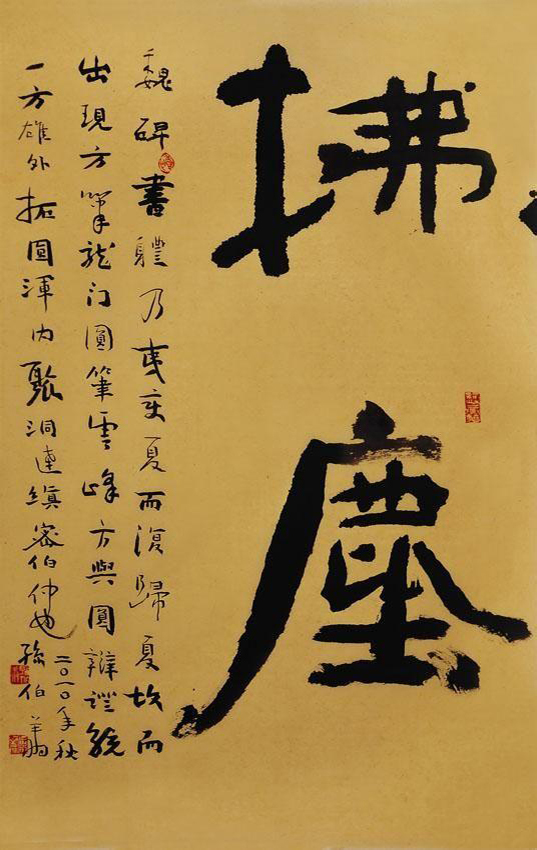 拂
塵
魏碑書體乃吏變夏而復歸夏故而
出現方筆龙门圓筆雲峰方與圓辯證統
一方雄外拓圓渾内聚洞達縝密伯仲也
二〇一〇年秋
孫伯翔